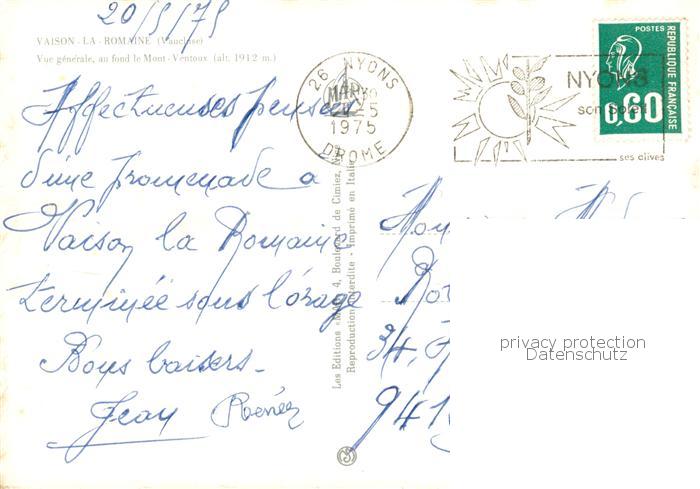 20/5/75
VAISON-LA-ROMAINE (Vaucluse)
Vue générale, au fond le Mont-Ventoux (alt. 1912 m.)
26 NYONS
1975
DROME
NYONS
ses olives
POSTES
0,60
REPUBLIQUE FRANÇAISE
Affectueuses pensées
d'une promenade a
Vaison la Romaine
terminée sous l'orage
Bons baisers-
Jean
34,
941
Les Editions «MAR» 4, Boulevard de Cimiez,
Reproduction interdite - Imprimé en Italie
privacy protection
Datenschutz